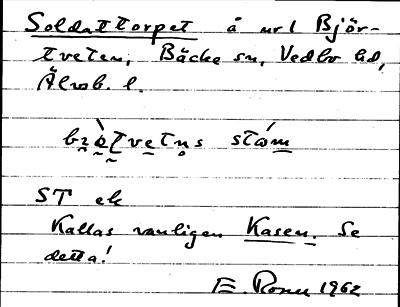 Soldattorpet å nr 1 Björ-
tveten, Bäcke sn, Vedbo hd,
Älvsb. l.
stóm
ST ek
Kallas vanligen Kasen. Se
detta!
1962